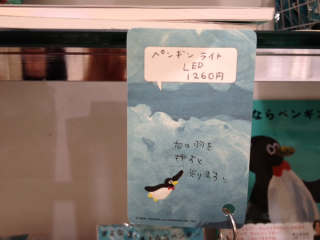 ペンギン ライト
LED
1260円
右の羽を
押すと
光りまろし
ならペンギン